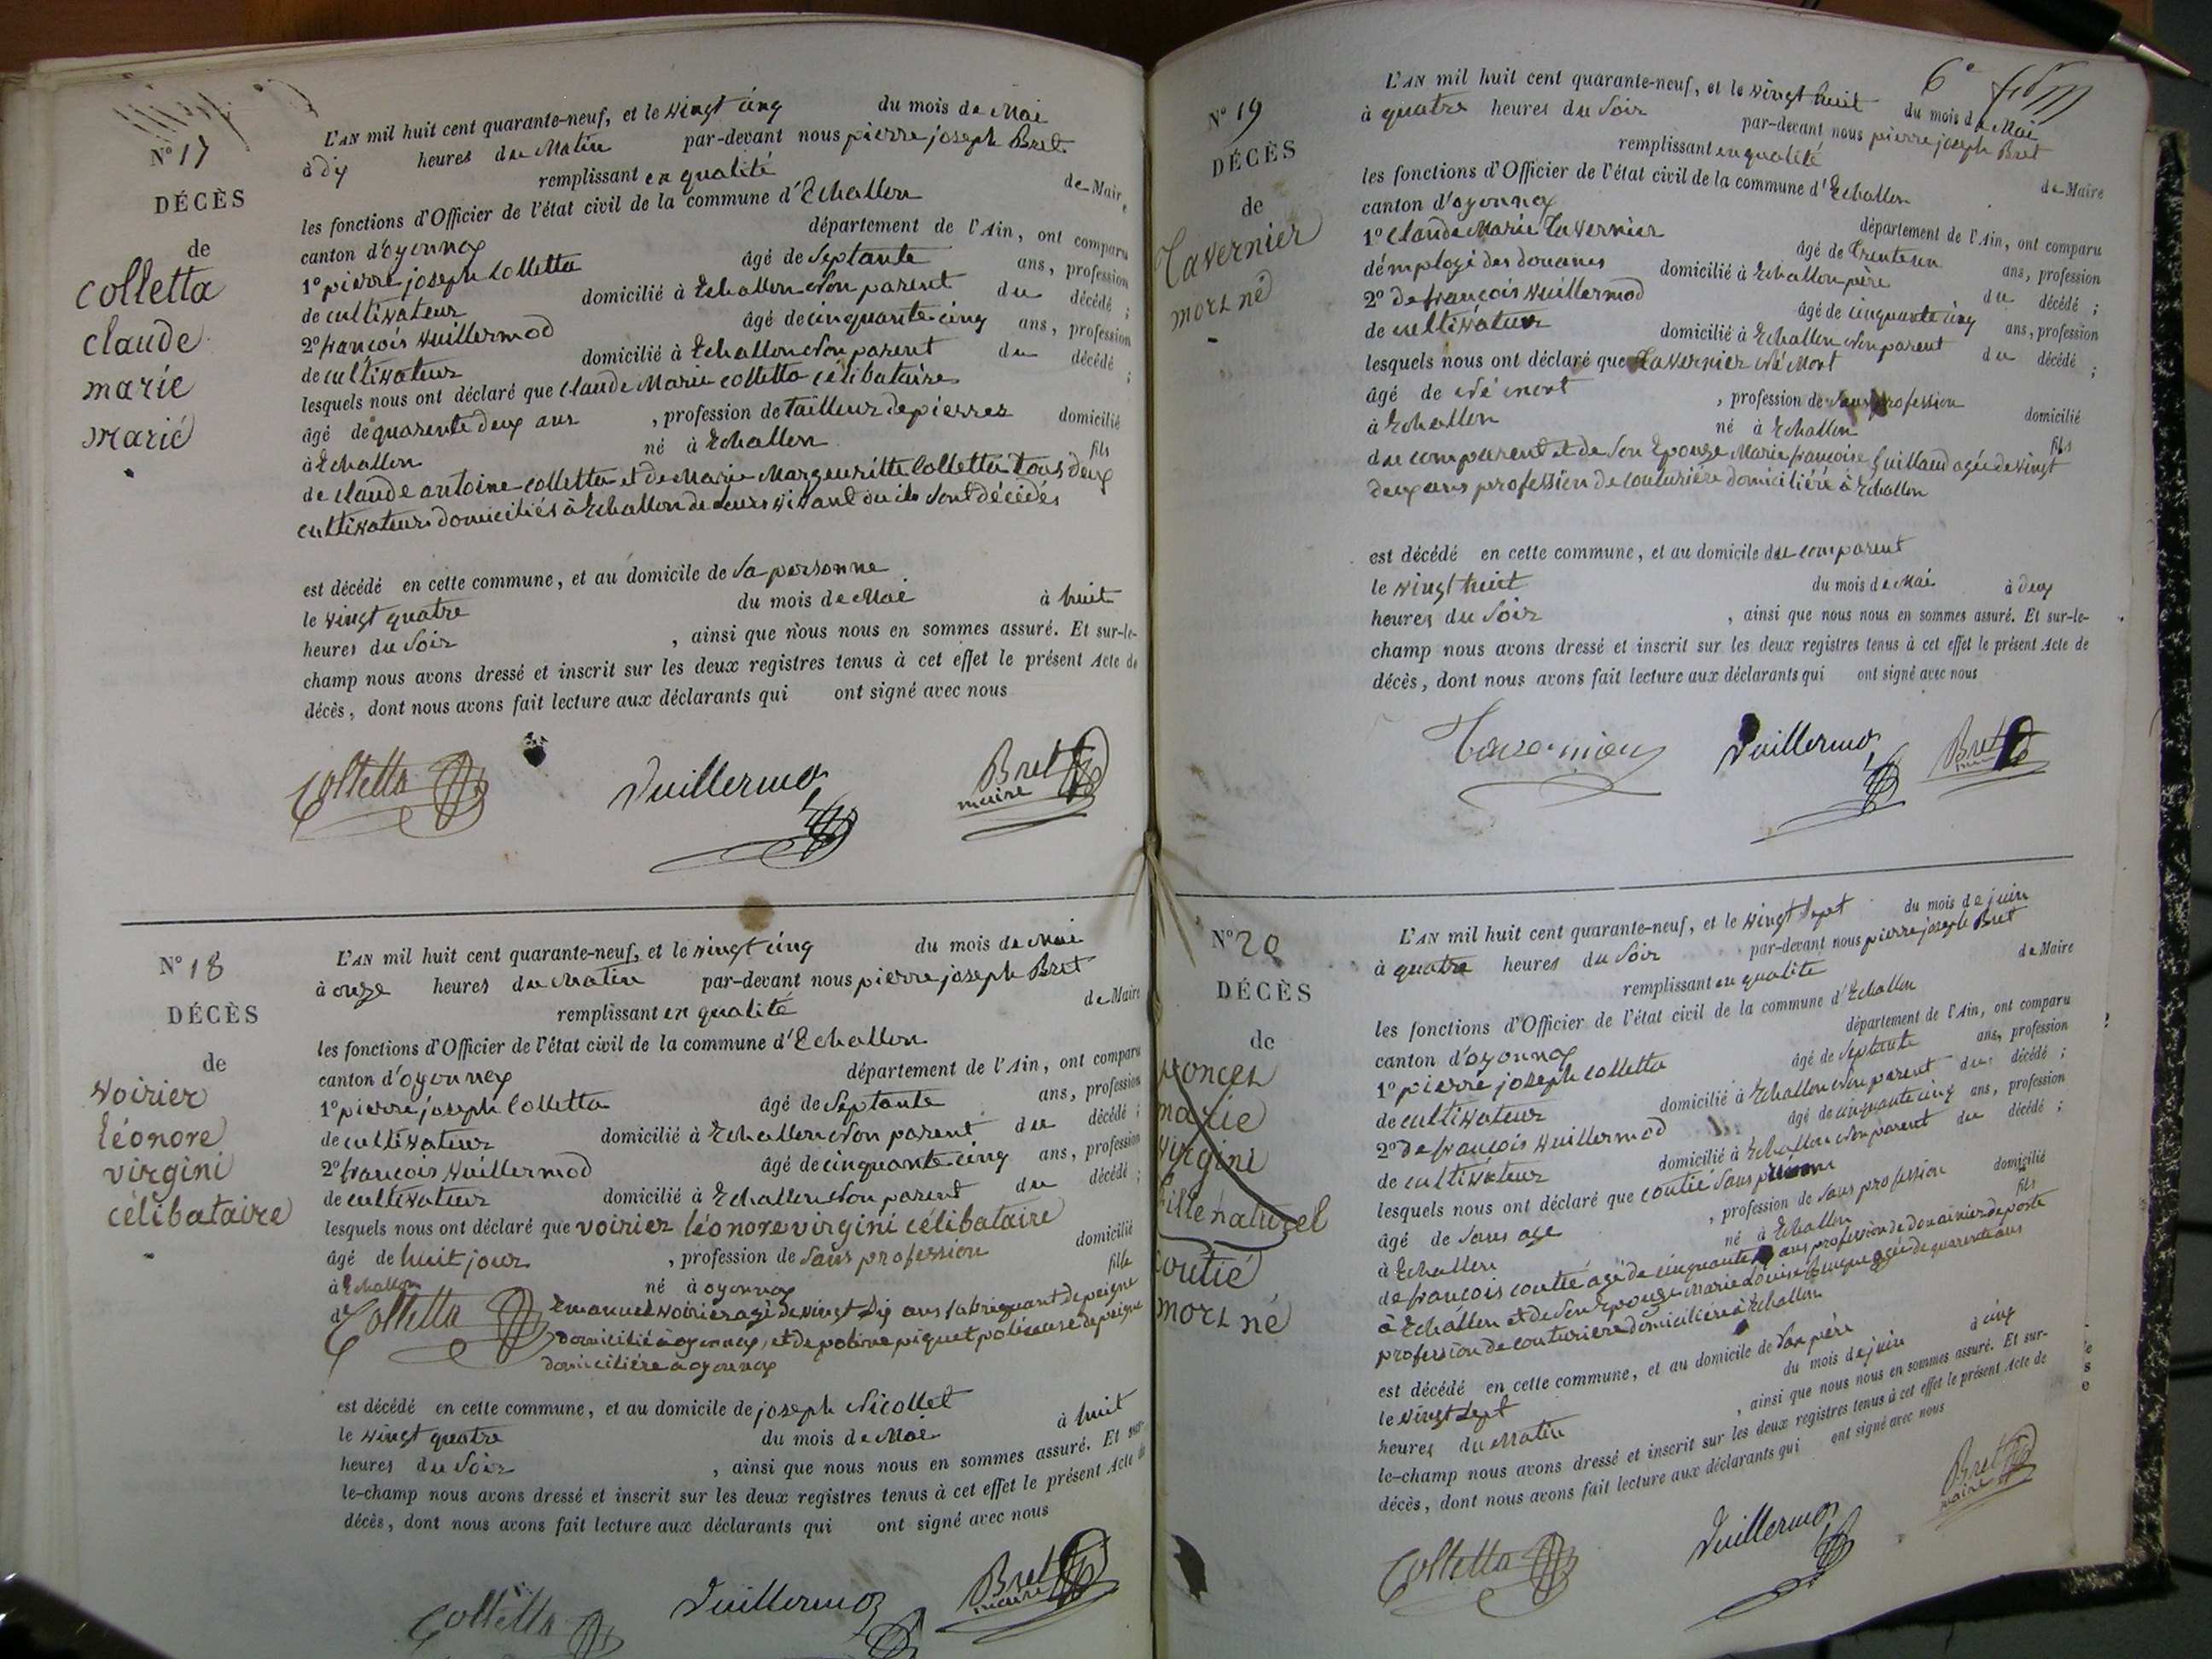 N° 17
DÉCÈS
de
colletta
claude
marie
marié
L'AN mil huit cent quarante-neuf, et le vingt cinq du mois de Mai
à dix heures du Matin par-devant nous pierre joseph Bret
remplissant en qualité de Maire
les fonctions d'Officier de l'état civil de la commune d'Echallon
canton d'oyonnax département de l'Ain, ont comparu
1° pierre joseph Colletta âgé de Septante ans, profession
de cultivateur domicilié à Echallon Non parent du décédé ;
2° francois Vuillermod âgé de cinquante cinq ans, profession
de cultivateur domicilié à Echallon Non parent du décédé ;
lesquels nous ont déclaré que Claude Marie colletta célibataire
âgé de quarente deux ans , profession de tailleur de pierres domicilié
à Echallon né à Echallon fils
de claude antoine colletta et de Marie Margueritte Colletta tous deux
cultivateurs domiciliés à Echallon de leurs vivant ou ils sont décédés
est décédé en cette commune, et au domicile de Sa personne
le vingt quatre du mois de Mai à huit
heures du Soir , ainsi que nous nous en sommes assuré. Et sur-le-
champ nous avons dressé et inscrit sur les deux registres tenus à cet effet le présent Acte de
décès, dont nous avons fait lecture aux déclarants qui ont signé avec nous
Colletta Vuillermoz Bret
maire
N° 18
DÉCÈS
de
voirier
léonore
virgini
célibataire
L'AN mil huit cent quarante-neuf, et le vingt cinq du mois de Mai
à onze heures du Matin par-devant nous pierre joseph Bret
remplissant en qualité de Maire
les fonctions d'Officier de l'état civil de la commune d'Echallon
canton d'oyonnax département de l'Ain, ont comparu
1° pierre joseph Colletta âgé de Septante ans, profession
de cultivateur domicilié à Echallon Non parent du décédé ;
2° francois Vuillermod âgé de cinquante cinq ans, profession
de cultivateur domicilié à Echallon Non parent du décédé ;
lesquels nous ont déclaré que voirier léonore virgini célibataire
âgé de huit jour , profession de Sans profession domicilié
à Echallon né à oyonnax fille
de Colletta Emanuel voirier agé de vingt Six ans fabriquant de peigne
domicilié à oyonnax, et de poline piquet poliseuse de peigne
domiciliére a oyonnax
est décédé en cette commune, et au domicile de joseph Nicollet
le vingt quatre du mois de Mai à huit
heures du Soir , ainsi que nous nous en sommes assuré. Et sur-
le-champ nous avons dressé et inscrit sur les deux registres tenus à cet effet le présent Acte de
décès, dont nous avons fait lecture aux déclarants qui ont signé avec nous
Colletta Vuillermoz Bret
maire
6°
N° 19
DÉCÈS
de
Tavernier
mort né
L'AN mil huit cent quarante-neuf, et le vingt huit du mois de Mai
à quatre heures du Soir par-devant nous pierre joseph Bret
remplissant en qualité de Maire
les fonctions d'Officier de l'état civil de la commune d'Echallon
canton d'oyonnax département de l'Ain, ont comparu
1° Claude Marie Tavernier âgé de trente un ans, profession
d'employé des douanes domicilié à Echallon père du décédé ;
2° de francois Vuillermod âgé de cinquante cinq ans, profession
de cultivateur domicilié à Echallon Non parent du décédé ;
lesquels nous ont déclaré que Tavernier Né Mort
âgé de Né mort , profession de Sans profession domicilié
à Echallon né à Echallon fils
du comparent et de Son Epouze Marie francoise Guilland agée de vingt
deux ans profession de couturiére domiciliére à Echallon
est décédé en cette commune, et au domicile du comparent
le vingt huit du mois de Mai à deux
heures du Soir , ainsi que nous nous en sommes assuré. Et sur-le-
champ nous avons dressé et inscrit sur les deux registres tenus à cet effet le présent Acte de
décès, dont nous avons fait lecture aux déclarants qui ont signé avec nous
Tavernier Vuillermoz Bret
N° 20
DÉCÈS
de
poncet
marie
virgini
fille naturel
coutié
mort né
L'AN mil huit cent quarante-neuf, et le vingt Sept du mois de juin
à quatre heures du Soir par-devant nous pierre joseph Bret
remplissant en qualité de Maire
les fonctions d'Officier de l'état civil de la commune d'Echallon
canton d'oyonnax département de l'Ain, ont comparu
1° pierre joseph colletta âgé de Septante ans, profession
de cultivateur domicilié à Echallon Non parent du décédé ;
2° de francois Vuillermod âgé de cinquante cinq ans, profession
de cultivateur domicilié à Echallon Non parent du décédé ;
lesquels nous ont déclaré que coutié Sans
âgé de Sans age , profession de Sans profession domicilié
à Echallon né à Echallon fils
de francois coutié agé de cinquante ans profession de douainier de poste
à Echallon et de Son Epouze Marie Louise agée de quarente ans
profession de couturiere domiciliére à Echallon
est décédé en cette commune, et au domicile de Son père
le vingt Sept du mois de juin à cinq
heures du Matin , ainsi que nous nous en sommes assuré. Et sur-
le-champ nous avons dressé et inscrit sur les deux registres tenus à cet effet le présent Acte de
décès, dont nous avons fait lecture aux déclarants qui ont signé avec nous
Colletta Vuillermoz Bret
maire